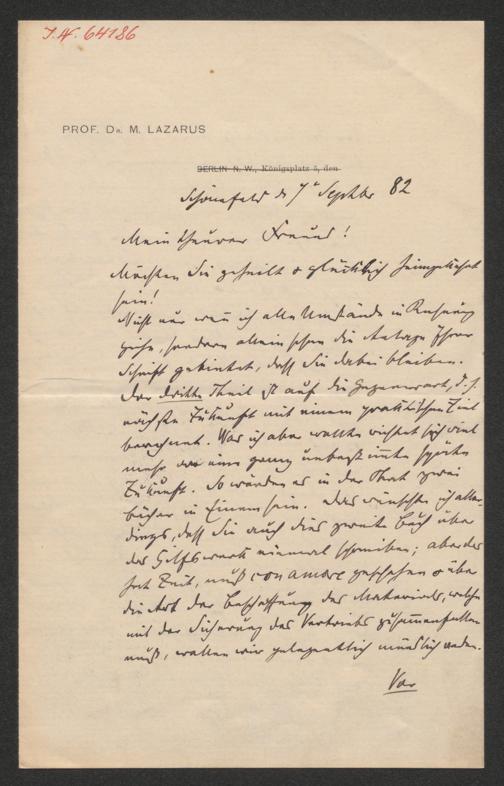 J.N. 64186
PROF. DR. M. LAZARUS
BERLIN N. W., Königsplatz 5, den
Schönefeld d. 7t Septbr 82
Mein theurer Freund!
Möchten Sie geheilt & glücklich heimgekehrt
sein!
Nicht nur wenn ich alle Umstände in Rechnung
ziehe, sondern allein schon die Anlage Ihrer
Schrift gebietet, daß Sie dabei bleiben.
Der dritte Theil ist auf die Gegenwart, d. h.
nächste Zukunft mit einem praktischen Ziel
berechnet. Was ich aber wollte richtet sich viel
mehr an eine ganz unbestimmte späte
Zukunft. So würden es in der That zwei
Bücher in Einem sein. Das wünschte ich aller-
dings, daß Sie auch dies zweite Buch über
das Hilfswerk einmal schreiben; aber das
hat Zeit, muß con amore geschehen & über
die Art der Beschaffung des Materials, welche
mit der Sicherung des Vertriebs zusammenfallen
muß, wollen wir gelegentlich mündlich reden.
Vor